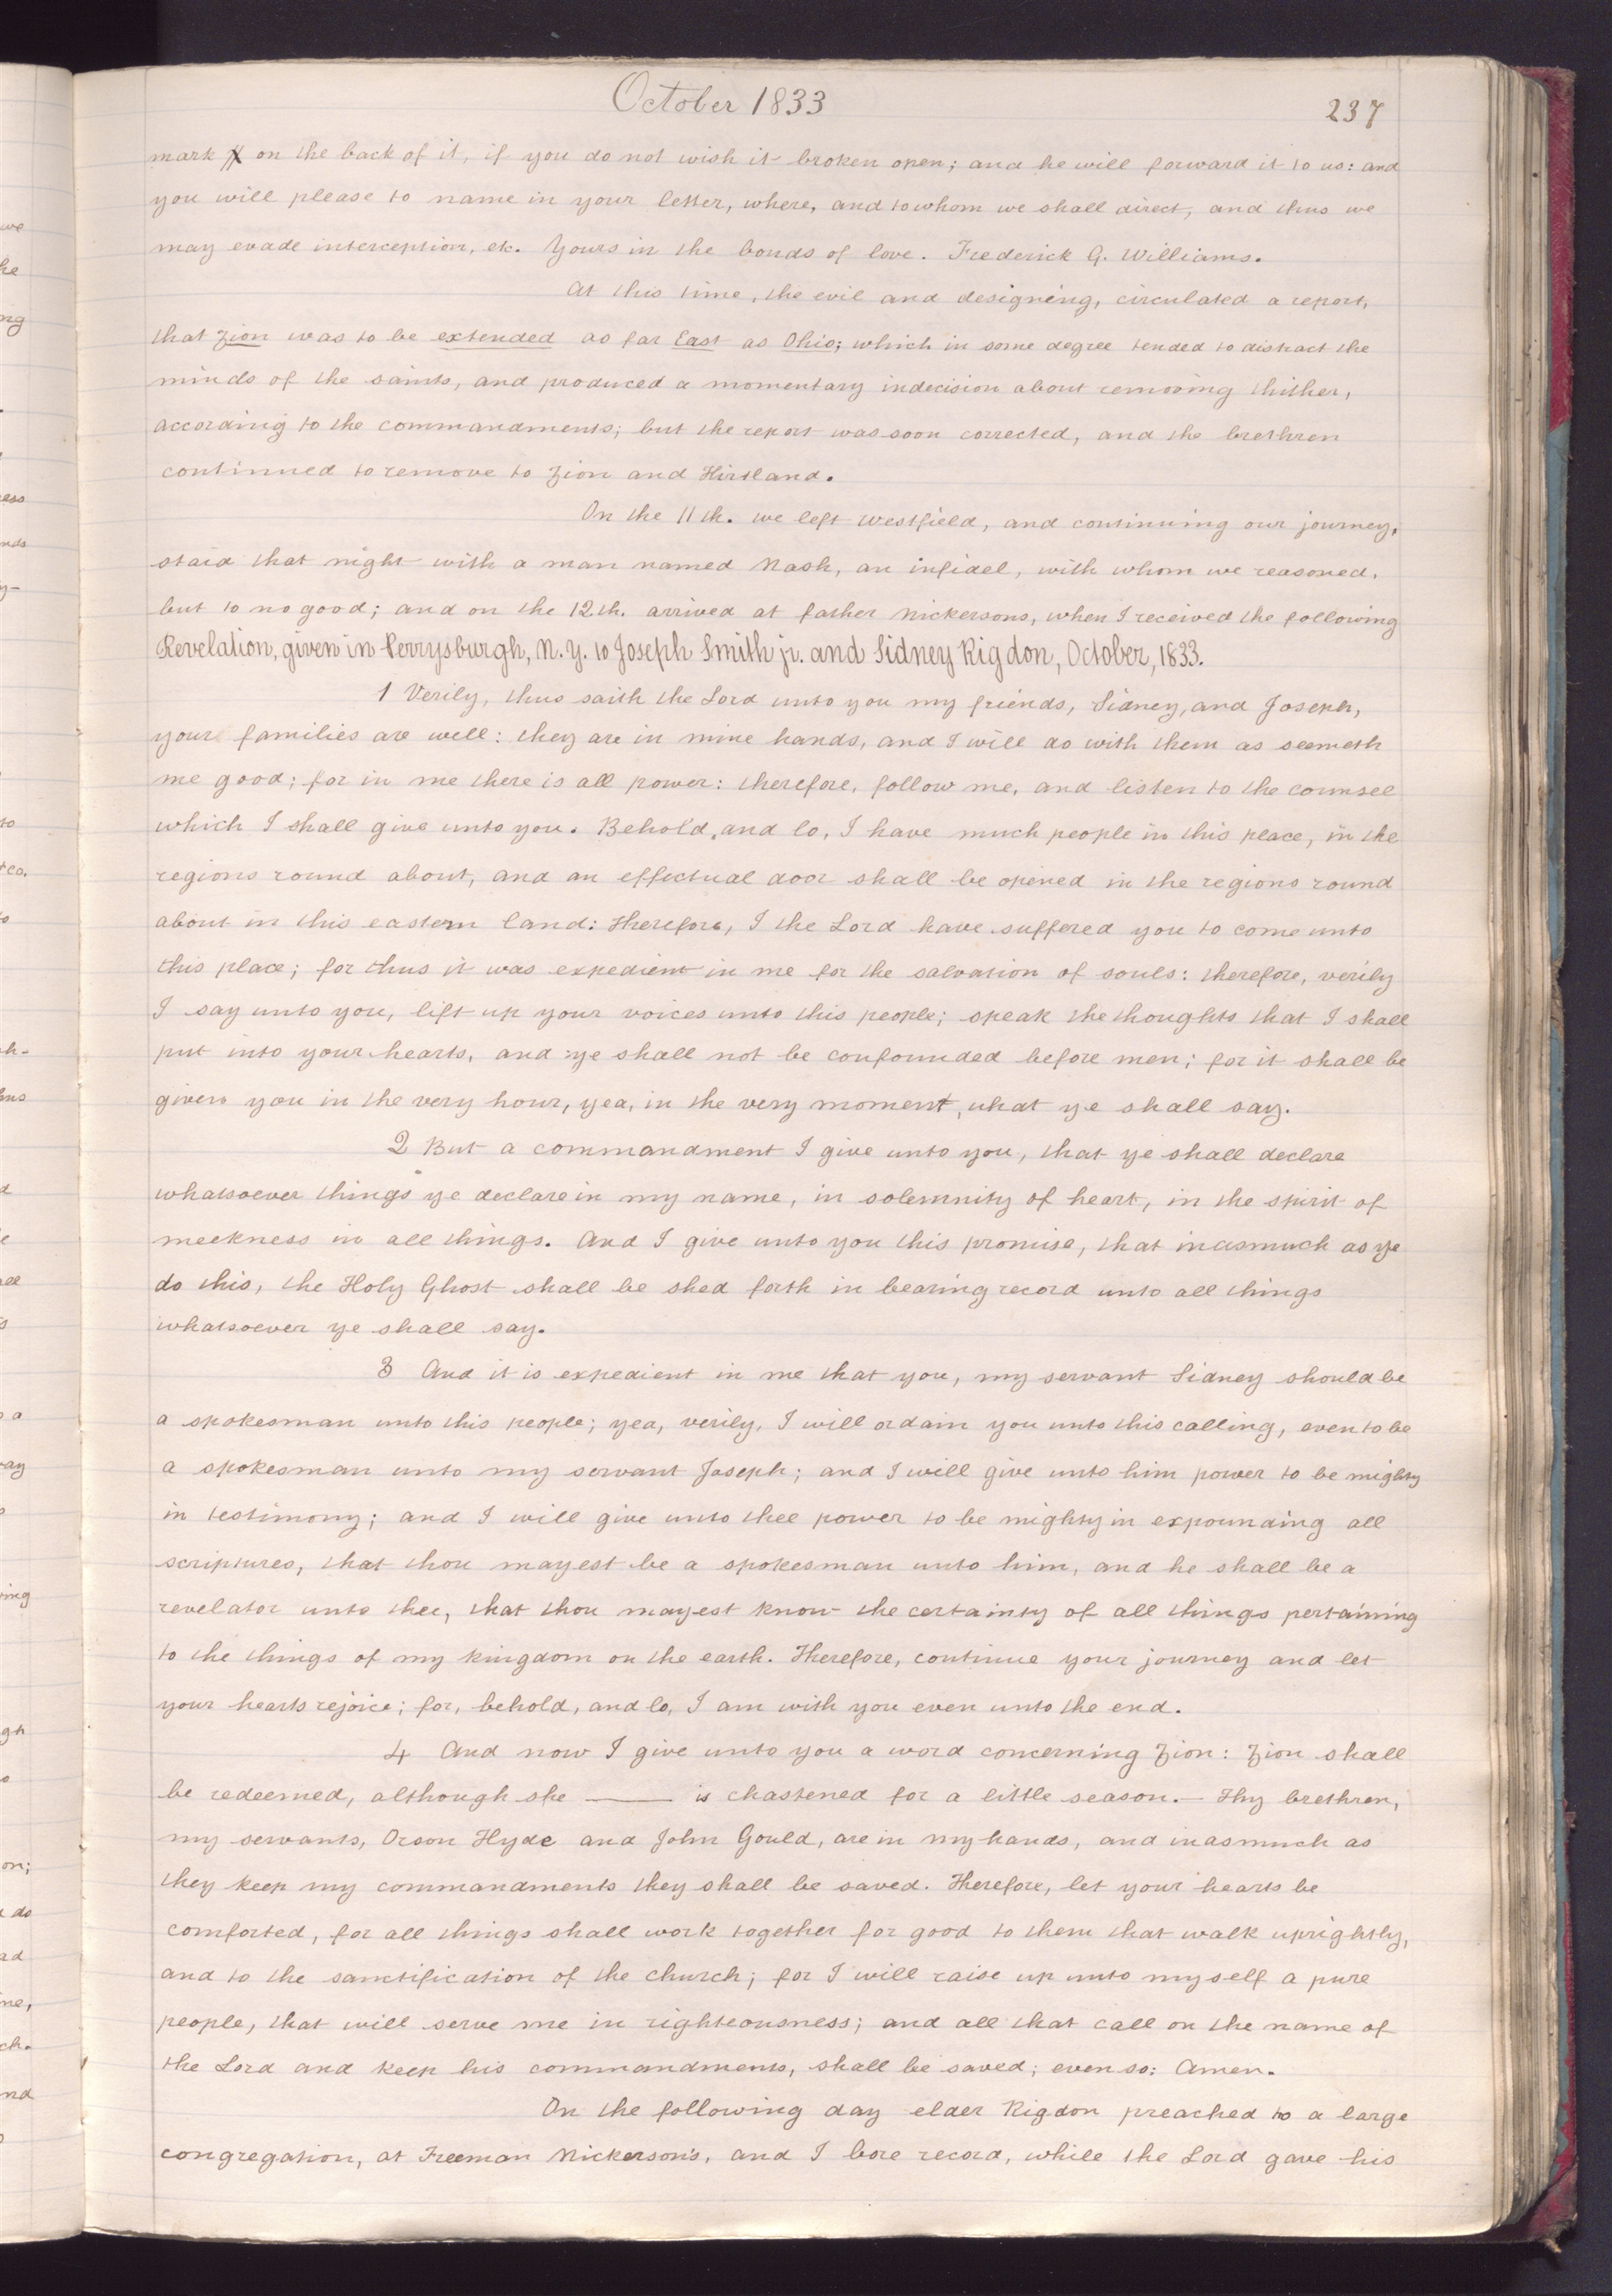 October 1833
237
mark X on the back of it, if you do not wish it broken open; and he will forward it to us: and
you will please to name in your letter, where, and to whom we shall direct, and thus we
may evade interception, etc. Yours in the bonds of love. Frederick G. Williams.
At this time, the evil and designing, circulated a report,
that Zion was to be extended as far East as Ohio; which in some degree tended to distract the
minds of the saints, and produced a momentary indecision about removing thither,
according to the commandments; but the report was soon corrected, and the brethren
continued to remove to Zion and Kirtland.
On the 11th. we left Westfield, and continuing our journey,
staid that night with a man named Nash, an infidel, with whom we reasoned,
but to no good; and on the 12th. arrived at father Nickersons, when I received the following
Revelation, given in Perrysburgh, N. Y. to Joseph Smith jr. and Sidney Rigdon, October, 1833.
1 Verily, thus saith the Lord unto you my friends, Sidney, and Joseph,
your families are well: they are in mine hands, and I will do with them as seemeth
me good; for in me there is all power: therefore, follow me, and listen to the counsel
which I shall give unto you. Behold, and lo, I have much people in this place, in the
regions round about, and an effectual door shall be opened in the regions round
about in this eastern land: Therefore, I the Lord have suffered you to come unto
this place; for thus it was expedient in me for the salvation of souls: therefore, verily
I say unto you, lift up your voices unto this people; speak the thoughts that I shall
put into your hearts, and ye shall not be confounded before men; for it shall be
given you in the very hour, yea, in the very moment, what ye shall say.
2 But a commandment I give unto you, that ye shall declare
whatsoever things ye declare in my name, in solemnity of heart, in the spirit of
meekness in all things. And I give unto you this promise, that inasmuch as ye
do this, the Holy Ghost shall be shed forth in bearing record unto all things
whatsoever ye shall say.
3 And it is expedient in me that you, my servant Sidney should be
a spokesman unto this people; yea, verily, I will ordain you unto this calling, even to be
a spokesman unto my servant Joseph; and I will give unto him power to be mighty
in testimony; and I will give unto thee power to be mighty in expounding all
scriptures, that thou mayest be a spokesman unto him, and he shall be a
revelator unto thee, that thou mayest know the certainty of all things pertaining
to the things of my kingdom on the earth. Therefore, continue your journey and let
your hearts rejoice; for, behold, and lo, I am with you even unto the end.
4 And now I give unto you a word concerning Zion: Zion shall
be redeemed, although she —— is chastened for a little season.— Thy brethren,
my servants, Orson Hyde and John Gould, are in my hands, and inasmuch as
they keep my commandments they shall be saved. Therefore, let your hearts be
comforted, for all things shall work together for good to them that walk uprightly,
and to the sanctification of the church; for I will raise up unto myself a pure
people, that will serve me in righteousness; and all that call on the name of
the Lord and keep his commandments, shall be saved; even so: Amen.
On the following day elder Rigdon preached to a large
congregation, at Freeman Nickerson's, and I bore record, while the Lord gave his